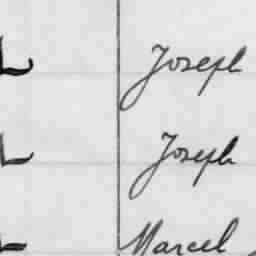 Joseph
Joseph
Marcel